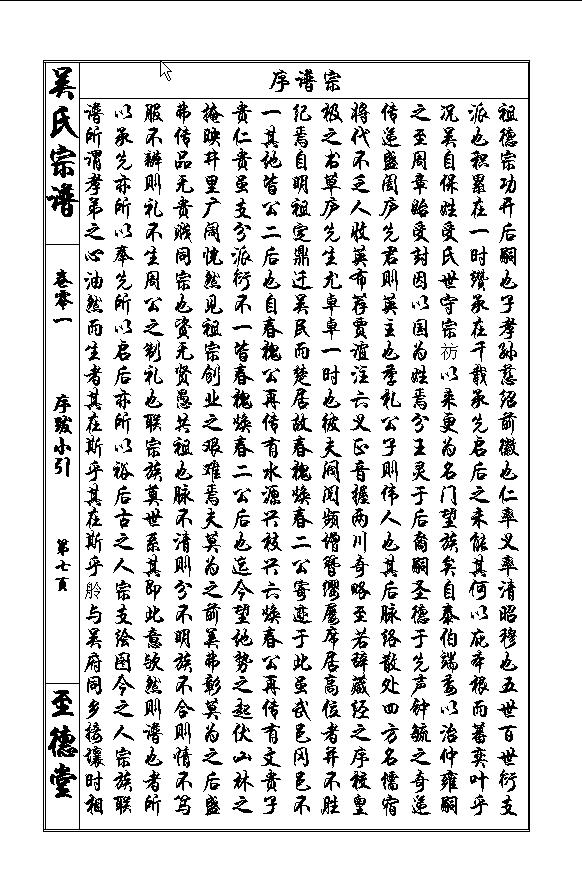 宗谱序
祖德宗功开后嗣也子孝孙慈绍前徽也仁率义率清昭穆也五世百世衍支
派也积累在一时缵承在千载承先启后之未能其何以庇本根而蕃奕叶乎
况吴自保姓受氏世守宗祊以来更为名门望族矣自泰伯端委以治仲雍嗣
之至周章始受封因以国为姓焉分王灵于后裔嗣圣德于先声钟毓之奇递
传递盛阖庐先君则英主也季礼公子则伟人也其后脉络散处四方名儒宿
将代不乏人收英布荐贾谊注六义正音握两川奇略至若辞藏经之序校皇
极之书草庐先生尤卓卓一时也彼夫阀阅频增簪缨屡席居高位者并不胜
纪焉自明祖定鼎迁吴民而楚居故春槐焕春二公寄迹于此虽武邑冈邑不
一其地皆公二后也自春槐公再传有水源兴枝兴六焕春公再传有文贵子
贵仁贵虽支分派衍不一皆春槐焕春二公后也迄今望地势之起伏山林之
掩映井里广阔恍然见祖宗创业之艰难焉夫莫为之前美弗彰莫为之后盛
弗传品无贵贱同宗也资无贤愚共祖也脉不清则分不明族不合则情不笃
服不辨则礼不生周公之制礼也联宗族奠世系其即此意欤然则谱也者所
以承先亦所以奉先所以启后亦所以裕后古之人宗支绘图今之人宗族联
谱所谓孝弟之心油然而生者其在斯乎其在斯乎舲与吴府同乡接壤时相
吴氏宗谱
卷零一
序跋小引
第七页
至德堂